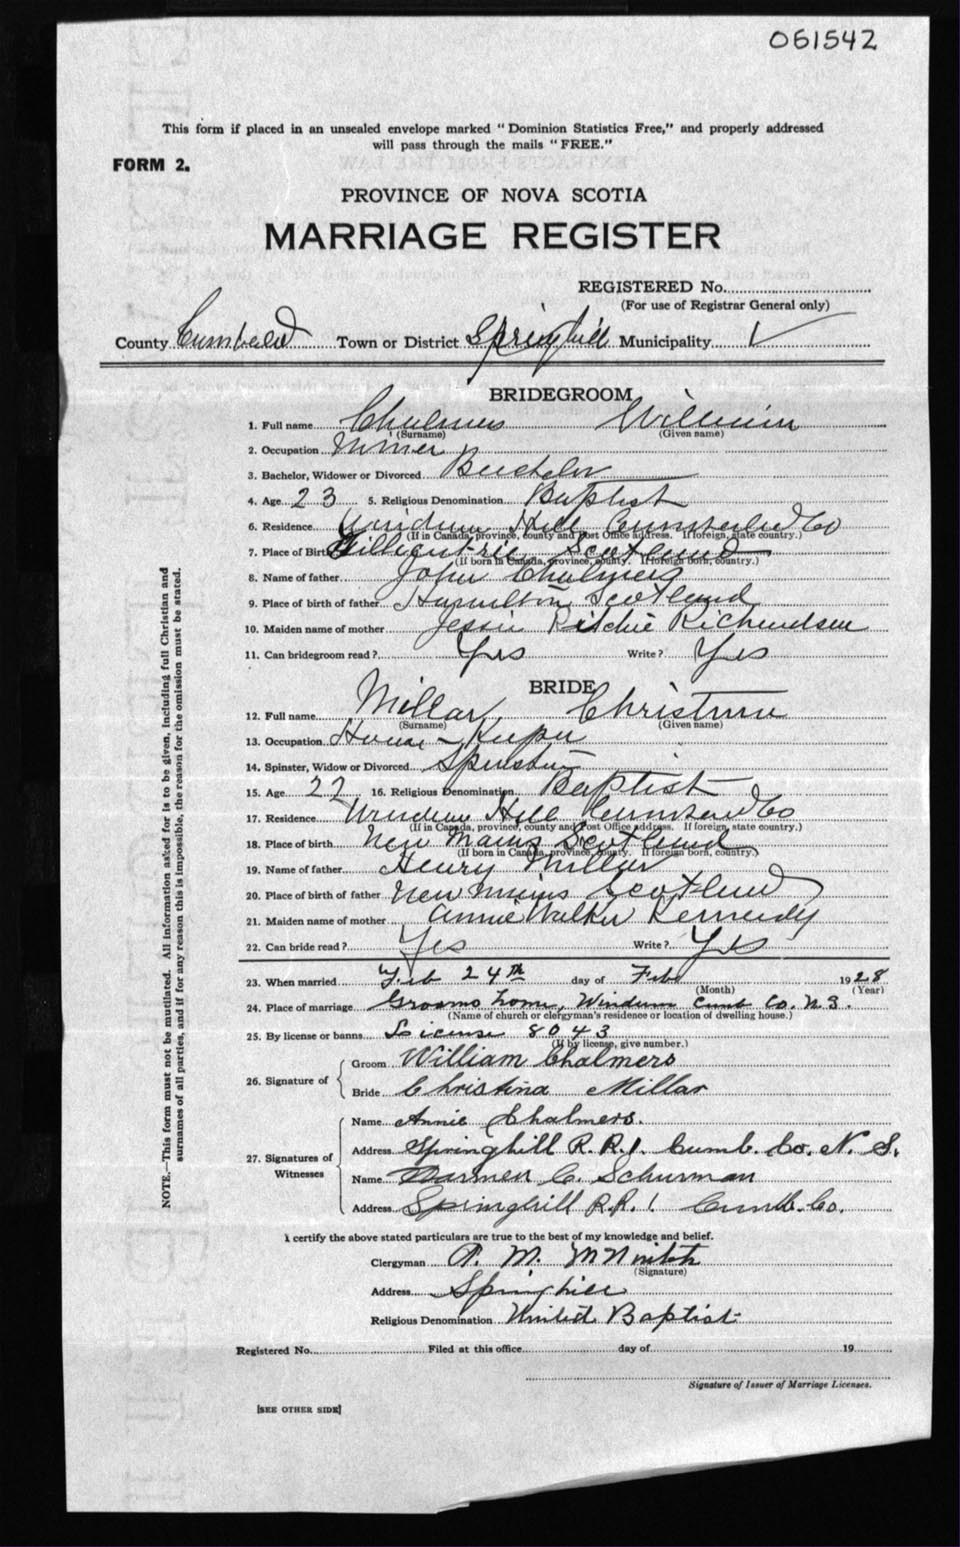 051542
This form if placed in an unsealed envelope marked "Dominion Statistics Free," and properly addressed
will pass through the mails "FREE."
FORM 2.
PROVINCE OF NOVA SCOTIA
MARRIAGE REGISTER
REGISTERED No.
(For use of Registrar General only)
County Cumbeld Town or District Springhill Municipality
BRIDEGROOM
1. Full name Chalmers William
(Surname) (Given name)
2. Occupation Miner
3. Bachelor, Widower or Divorced Bachelor
4. Age 23 5. Religious Denomination Baptist
6. Residence Windum Hill Cumberland Co
(If in Canada, province, county and Post Office address. If foreign, state country.)
7. Place of Birth Scotland
(If born in Canada, province, county. If foreign born, country.)
8. Name of father John Chalmers
9. Place of birth of father Hamilton Scotland
10. Maiden name of mother Jessie Ritchie Richardson
11. Can bridegroom read? Yes Write? Yes
BRIDE
12. Full name Millar Christina
(Surname) (Given name)
13. Occupation House-Keeper
14. Spinster, Widow or Divorced Spinster
15. Age 22 16. Religious Denomination Baptist
17. Residence Windum Hill Cumberland Co
(If in Canada, province, county and Post Office address. If foreign, state country.)
18. Place of birth New Mains Scotland
(If born in Canada, province, county. If foreign born, country.)
19. Name of father Henry Millar
20. Place of birth of father New Mains Scotland
21. Maiden name of mother Annie Walker Kennedy
22. Can bride read? Yes Write? Yes
23. When married Feb 24th day of Feb 1928
(Month) (Year)
24. Place of marriage Grooms home, Windum Cumb Co. N.S.
(Name of church or clergyman's residence or location of dwelling house.)
25. By license or banns License 8043
(If by license, give number.)
26. Signature of
Groom William Chalmers
Bride Christina Millar
27. Signatures of Witnesses
Name Annie Chalmers.
Address Springhill R.R.1. Cumb. Co. N.S.
Name C. Schurman
Address Springhill R.R.1. Cumb. Co.
I certify the above stated particulars are true to the best of my knowledge and belief.
Clergyman
(Signature)
Address Springhill
Religious Denomination United Baptist
Registered No. Filed at this office day of 19
Signature of Issuer of Marriage Licenses.
[SEE OTHER SIDE]
NOTE.—This form must not be mutilated. All information asked for is to be given, including full Christian and
surnames of all parties, and if for any reason this is impossible, the reason for the omission must be stated.